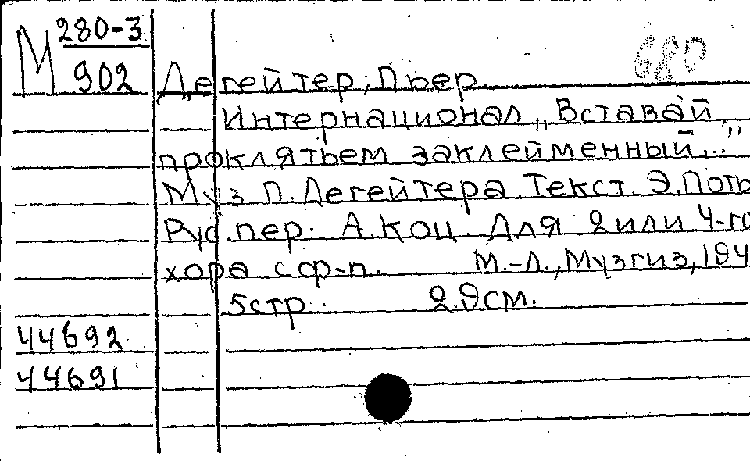 М 280-3
902
680
Дегейтер, Пьер
Интернационал „Вставай,
проклятьем заклейменный..."
Муз П. Дегейтера Текст. Э. Поть
Рус. пер. А. Коц. Для 2 или 4-го
хора с ф-п. М.-Л., Музгиз, 194
5 стр. 29 см.
44692
44691